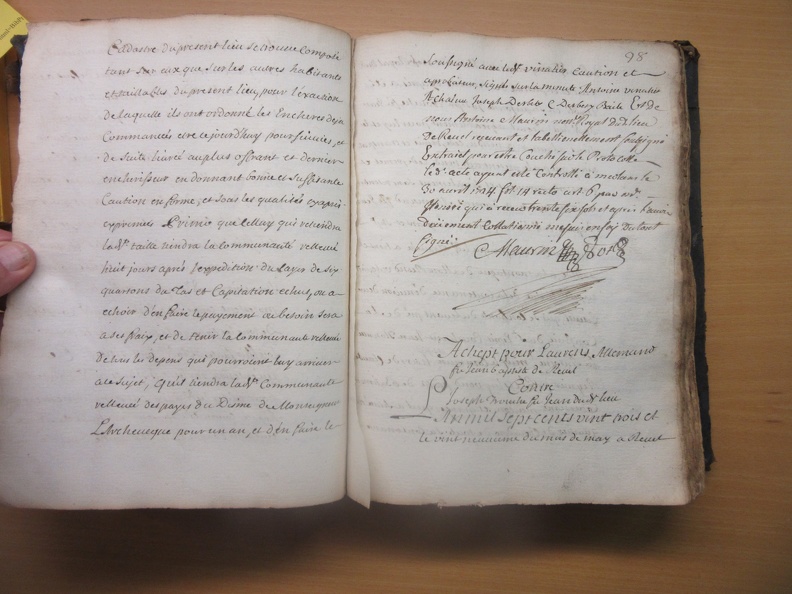 Cadastre du present lieu se trouve Compozé
tant sur eux que sur les autres habitants
et taillables du present lieu, pour l'exaction
de laquelle ils ont ordonné les Encheres deja
Commancés etre ce jourd'huy poursuivies, et
de suite livré au plus offrant et dernier
encherisseur en donnant bonne et suffisante
Caution en forme, et sous les qualités cyaprés
exprimées Primo que Celluy qui retiendra
la de taille tiendra la Communauté rellevée
huit jours aprés l'expedition du Lazer de six
quartons du Tas et Capitation echus, ou a
echoir d'en faire le payement au besoin sera
a ses fraix, et de tenir la Communauté rellevée
de tous les depens qui pourroint luy arriver
a ce sujet, Qu'il tiendra la de Communauté
rellevée des payes du Disme de Monseigneur
L'Archeveque pour un an, et d'en faire le
98
soussigné avec led vinatier Caution et
aprobateur, signés sur la minute Antoine vinatier
A chalue Joseph Derbes, C Derbezy Et de
nous Antoine Maurin not Royal Dud lieu
De Revel requerant et habituellement soussigné
Extrait pour etre Couché sur le Protocolle
led acte ayant eté Controllé a
30 avril 1724 fol 14 recto art 6 par
qui a receu trente six sols et aprés l'avoir
deüement Collationné me suis en foy du tout
signé
Maurin
Achept pour Laurens Allemand
fs Jean baptiste de Revel
Contre
Joseph fs Jean dud lieu
L'An mil sept cents vint trois et
le vint neuvieme du mois de may a Revel